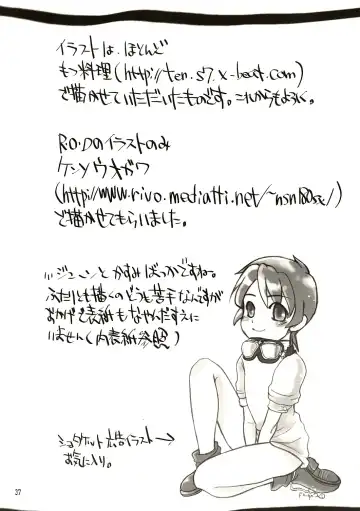 イラストは、ほとんど
もつ料理(http://ten.s7.x-beat.com)
で描かせていただいたものです。これからもよろしく。
R.O.Dのイラストのみ
ケンソウオガワ
(http://www.rivo.mediatti.net/~nsn180sx/)
で描かせてもらいました。
とかすみばっかですね。
ふたりとも描くのどうも苦手なんですが
おかげで表紙もなやんだすえに
いません(内表紙参照)
広告イラスト→
お気に入り。
37